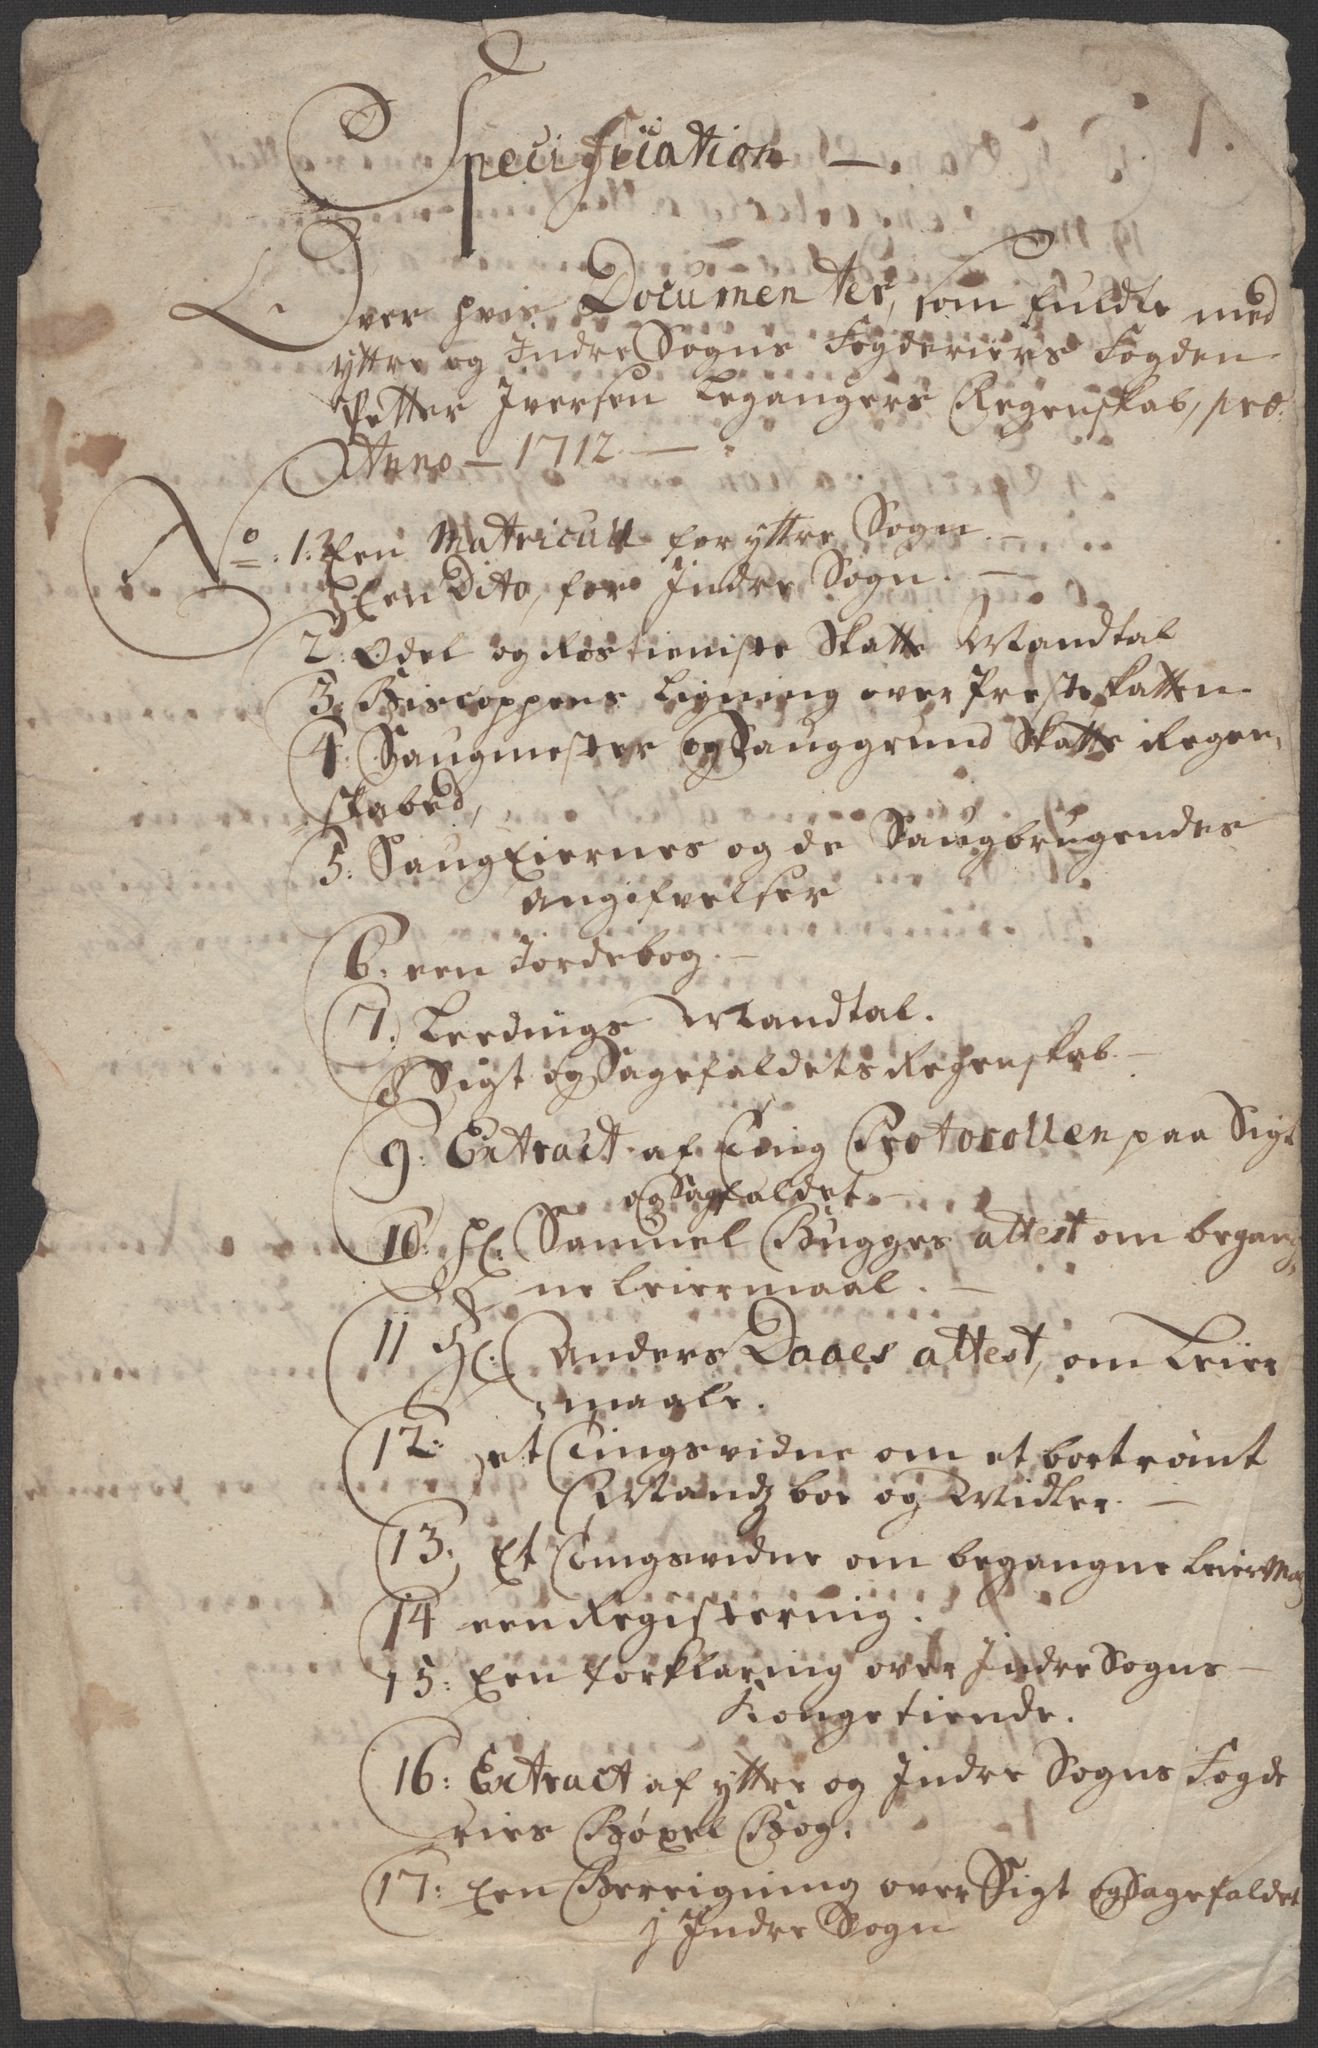 Specification —
Over hvis Documenter, som fuldte med
yttre og Indre Sogns Fogderiers Fogden
Petter Iversen Legangers Regenskab, pro:
Anno — 1712 —
No: 1: Een Matricull for yttre Sogn. —
Een Dito, for Indre Sogn. —
2: Odel og Rostieniste Skatte Mandtal
3: Biscoppens Ligning over Presteskatten
4: Saugmester og Sauggrund Skatte Regen,
skabed,
5: Saug Eiernes og de Saugbrugendes
Angifvelser
6: een Jordebog. —
7: Leedings Mandtal.
8 Sigt og Sagefaldets Regenskab. —
9: Extract af Ting Protocollen paa Sigt
og Sagefaldet. —
10: Hr: Samuel Bugges attest om begang,
ne Leiermaal. —
11 Hr: Anders Daaes attest, om Leier
maale.
12: et Tingsvidne om et bortrømt
Mands boe og Midler. —
13: Et Tingsvidne om begangne Leiermaa
14 een Registering.
15: Een forklaring over Indre Sogns —
Kongetiende.
16: Extract af yttre og Indre Sogns Fogde
ries Bøxel Bog.
17: Een Beregning over Sigt og Sagefaldet
j Indre Sogn